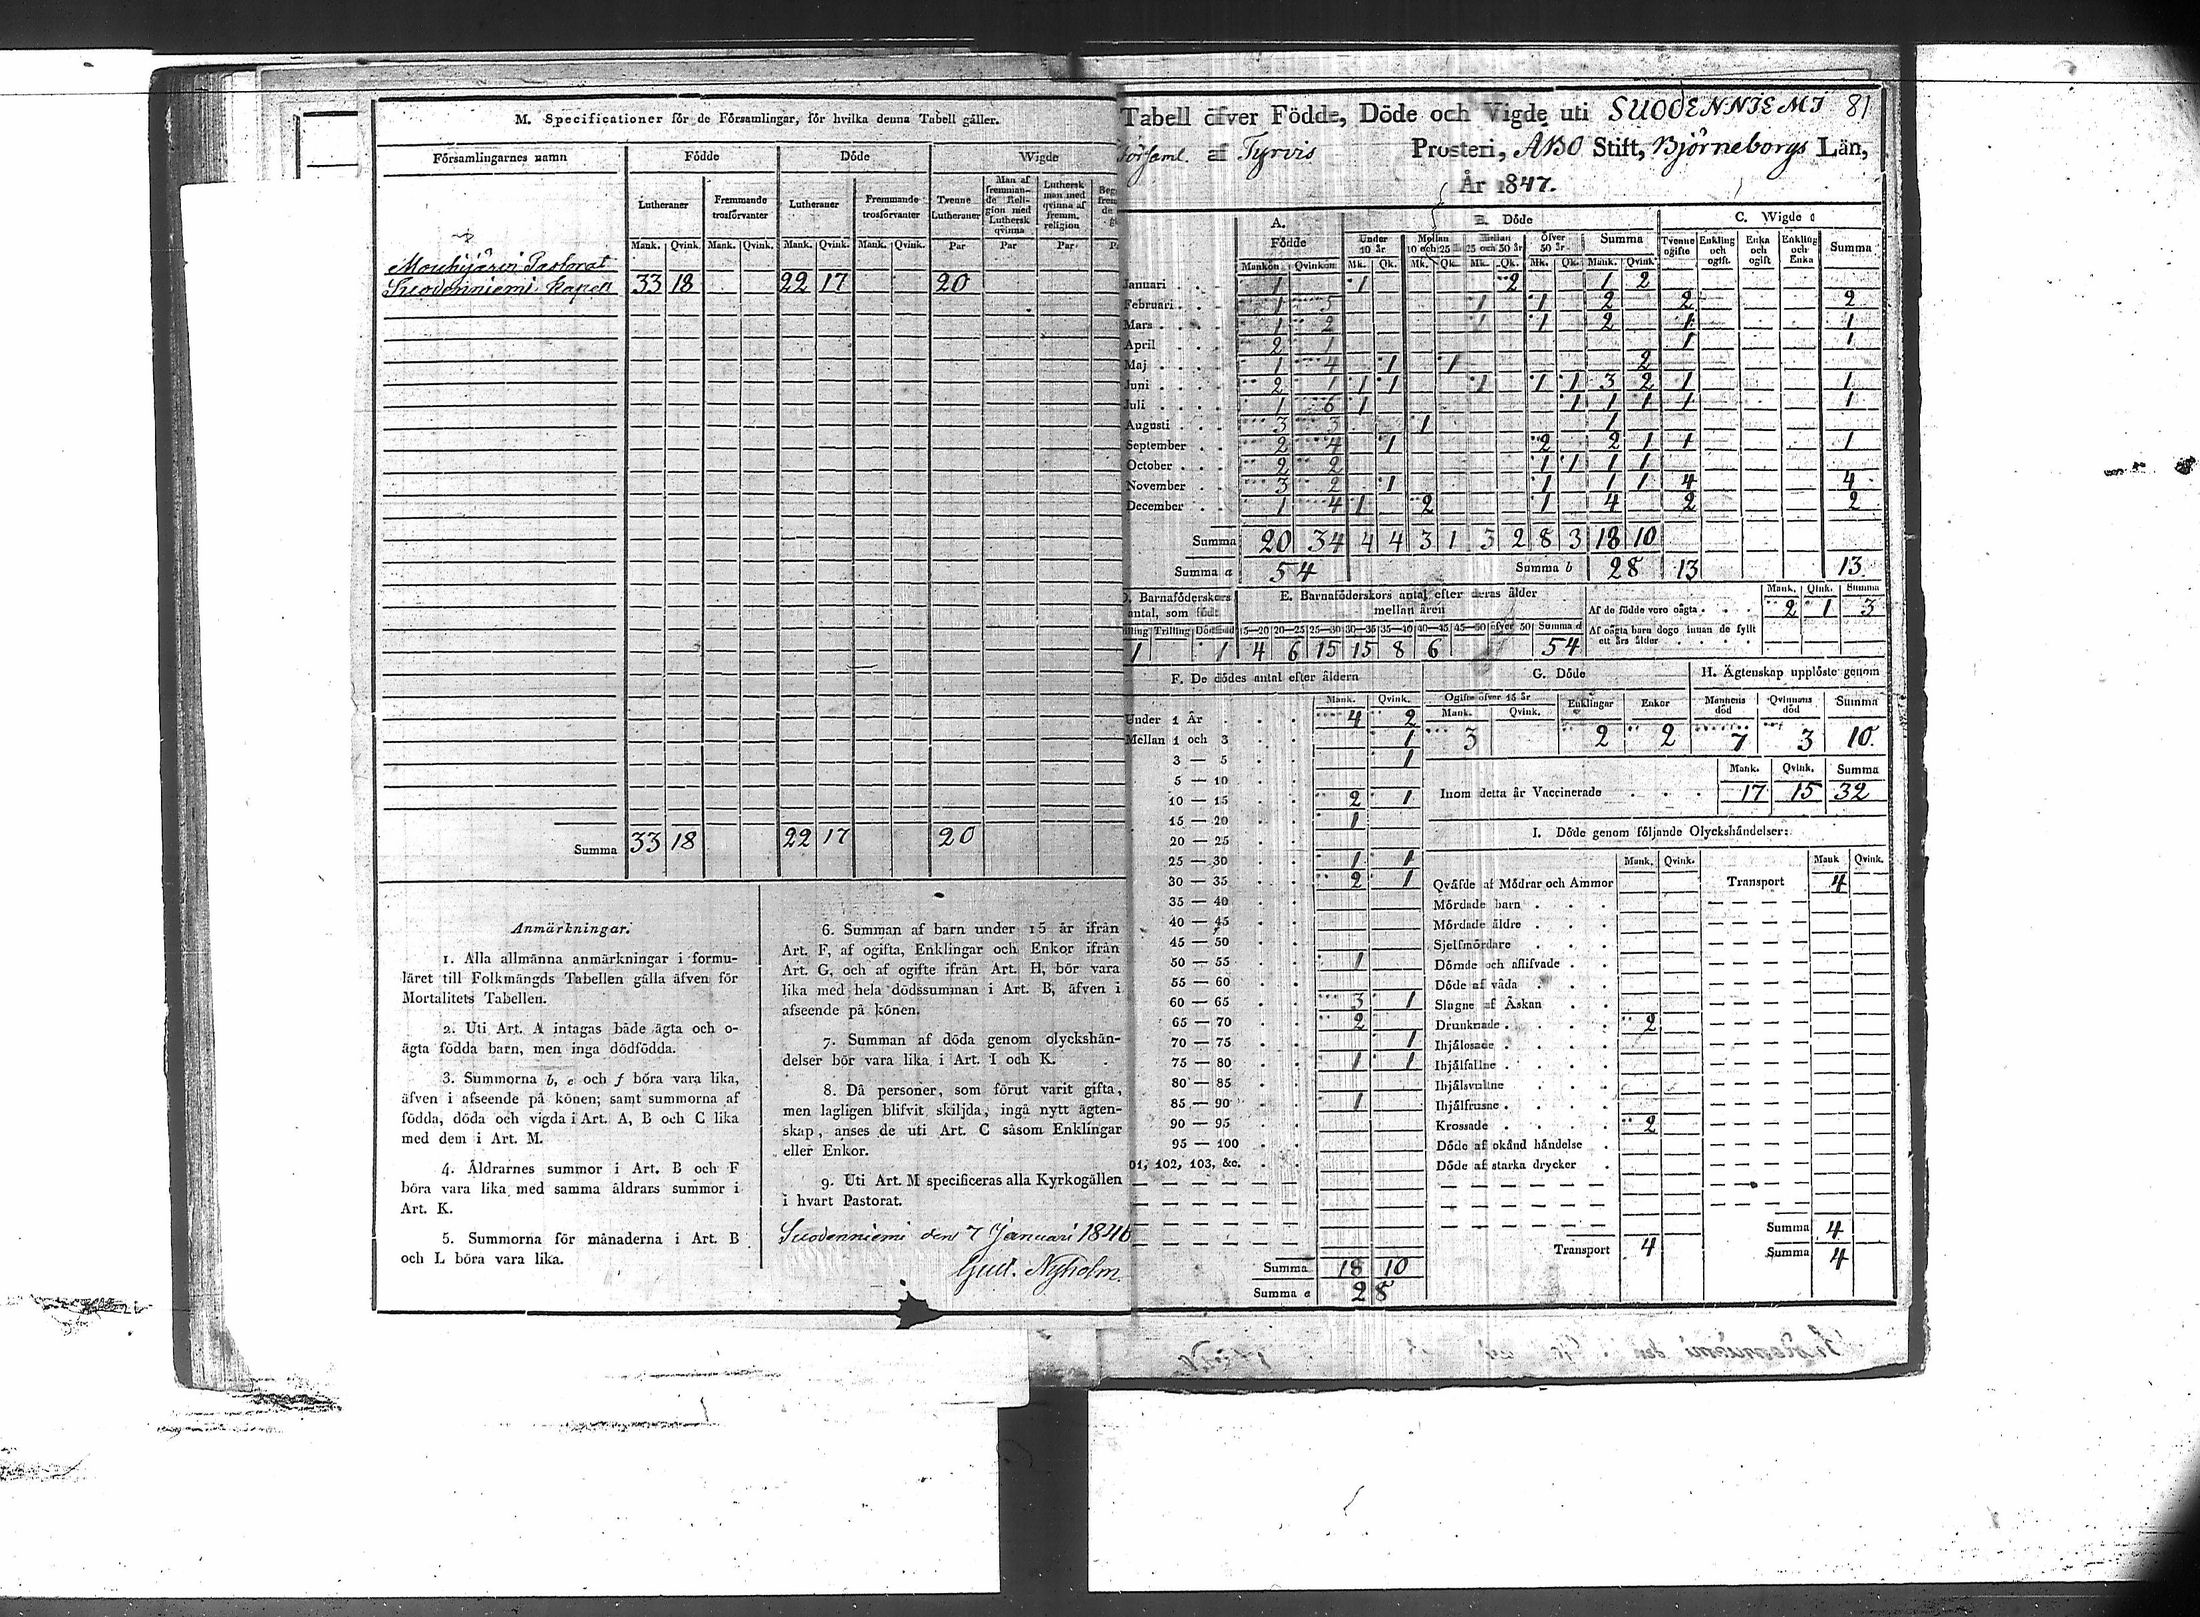 M. Specificationer för de Församlingar, för hvilka denna Tabell gäller.
Församlingarnes namn Födde Döde Wigde
Lutheraner Fremmande trosförvanter Lutheraner Fremmande trosförvanter Tvenne Lutheraner Man af fremmande Religion med Luthersk qvinna Luthersk man med qvinna af fremm. religion
Mank. Qvink. Mank. Qvink. Mank. Qvink. Mank. Qvink. Par Par Par
Mouhijärvi Pastorat
Suodenniemi Kapell 33 18 22 17 20
Summa 33 18 22 17 20
Anmärkningar.
1. Alla allmänna anmärkningar i formu-
läret till Folkmängds Tabellen gälla äfven för
Mortalitets Tabellen.
2. Uti Art. A intagas både ägta och o-
ägta födda barn, men inga dödfödda.
3. Summorna b, e och f böra vara lika,
äfven i afseende på könen; samt summorna af
födda, döda och vigda i Art. A, B och C lika
med dem i Art. M.
4. Åldrarnes summor i Art. B och F
böra vara lika med samma åldrars summor i
Art. K.
5. Summorna för månaderna i Art. B
och L böra vara lika.
6. Summan af barn under 15 år ifrån
Art. F, af ogifta, Enklingar och Enkor ifrån
Art. G, och af ogifte ifrån Art. H, bör vara
lika med hela dödssumman i Art. B, äfven i
afseende på könen.
7. Summan af döda genom olyckshän-
delser bör vara lika i Art. I och K.
8. Då personer, som förut varit gifta,
men lagligen blifvit skiljda, ingå nytt ägten-
skap, anses de uti Art. C såsom Enklingar
eller Enkor.
9. Uti Art. M specificeras alla Kyrkogällen
i hvart Pastorat.
Suodenniemi den 7 Januari 1846
Gust. Nyholm.
Tabell öfver Födde, Döde och Vigde uti SUODENNIEMI 81
Församl. af Tyrvis Prosteri, ÅBO Stift, Björneborgs Län,
År 1847.
A. Födde B. Döde C. Wigde
Under 10 år Mellan 10 och 25 Mellan 25 och 50 år Öfver 50 år Summa Tvenne ogifte Enkling och ogift Enka och ogift Enkling och Enka Summa
Mankön Qvinkön Mk. Qk. Mk. Qk. Mk. Qk. Mk. Qk. Mank. Qvink.
Januari 1 1 2 1 2
Februari 1 5 1 1 2 2 2
Mars 1 2 1 1 2 1 1
April 2 1 1 1
Maj 1 4 1 1 2
Juni 2 1 1 1 1 1 1 3 2 1 1
Juli 1 6 1 1 1 1 1 1
Augusti 3 3 1 1
September 2 4 1 2 2 1 1 1
October 2 2 1 1 1 1
November 3 2 1 1 1 1 4 4
December 1 4 1 2 1 4 2 2
Summa 20 34 4 4 3 1 3 2 8 3 18 10
Summa a 54 Summa b 28 13 13
D. Barnaföderskors antal, som födt
Trilling
1 1
E. Barnaföderskors antal efter deras ålder mellan åren
15—20 20—25 25—30 30—35 35—40 40—45 45—50 öfver 50 Summa d
4 6 15 15 8 6 54
Mank. Qink. Summa
Af de födde voro oägta 2 1 3
Af oägta barn dogo innan de fyllt
ett års ålder
F. De dödes antal efter åldern
Mank. Qvink.
Under 1 År 4 2
Mellan 1 och 3 1
3 — 5 1
5 — 10
10 — 15 2 1
15 — 20 1
20 — 25
25 — 30 1 1
30 — 35 2 1
35 — 40
40 — 45
45 — 50
50 — 55 1
55 — 60
60 — 65 3 1
65 — 70 2
70 — 75 1
75 — 80 1 1
80 — 85
85 — 90 1
90 — 95
95 — 100
101, 102, 103, &c.
Summa 18 10
Summa e 28
G. Döde
Ogifte öfver 15 år Enklingar Enkor
Mank. Qvink.
3 2 2
H. Ägtenskap upplöste genom
Mannens död Qvinnans död Summa
7 3 10.
Mank. Qvink. Summa
Inom detta år Vaccinerade 17 15 32
I. Döde genom följande Olyckshändelser:
Mank. Qvink. Mank Qvink.
Qväfde af Mödrar och Ammor Transport 4
Mördade barn
Mördade äldre
Sjelfmördare
Dömde och aflifvade
Döde af våda
Slagne af Åskan
Drunknade 2
Ihjälosade
Ihjälfallne
Ihjälsvultne
Ihjälfrusne
Krossade 2
Döde af okänd händelse
Döde af starka drycker
Summa 4
Transport 4 Summa 4